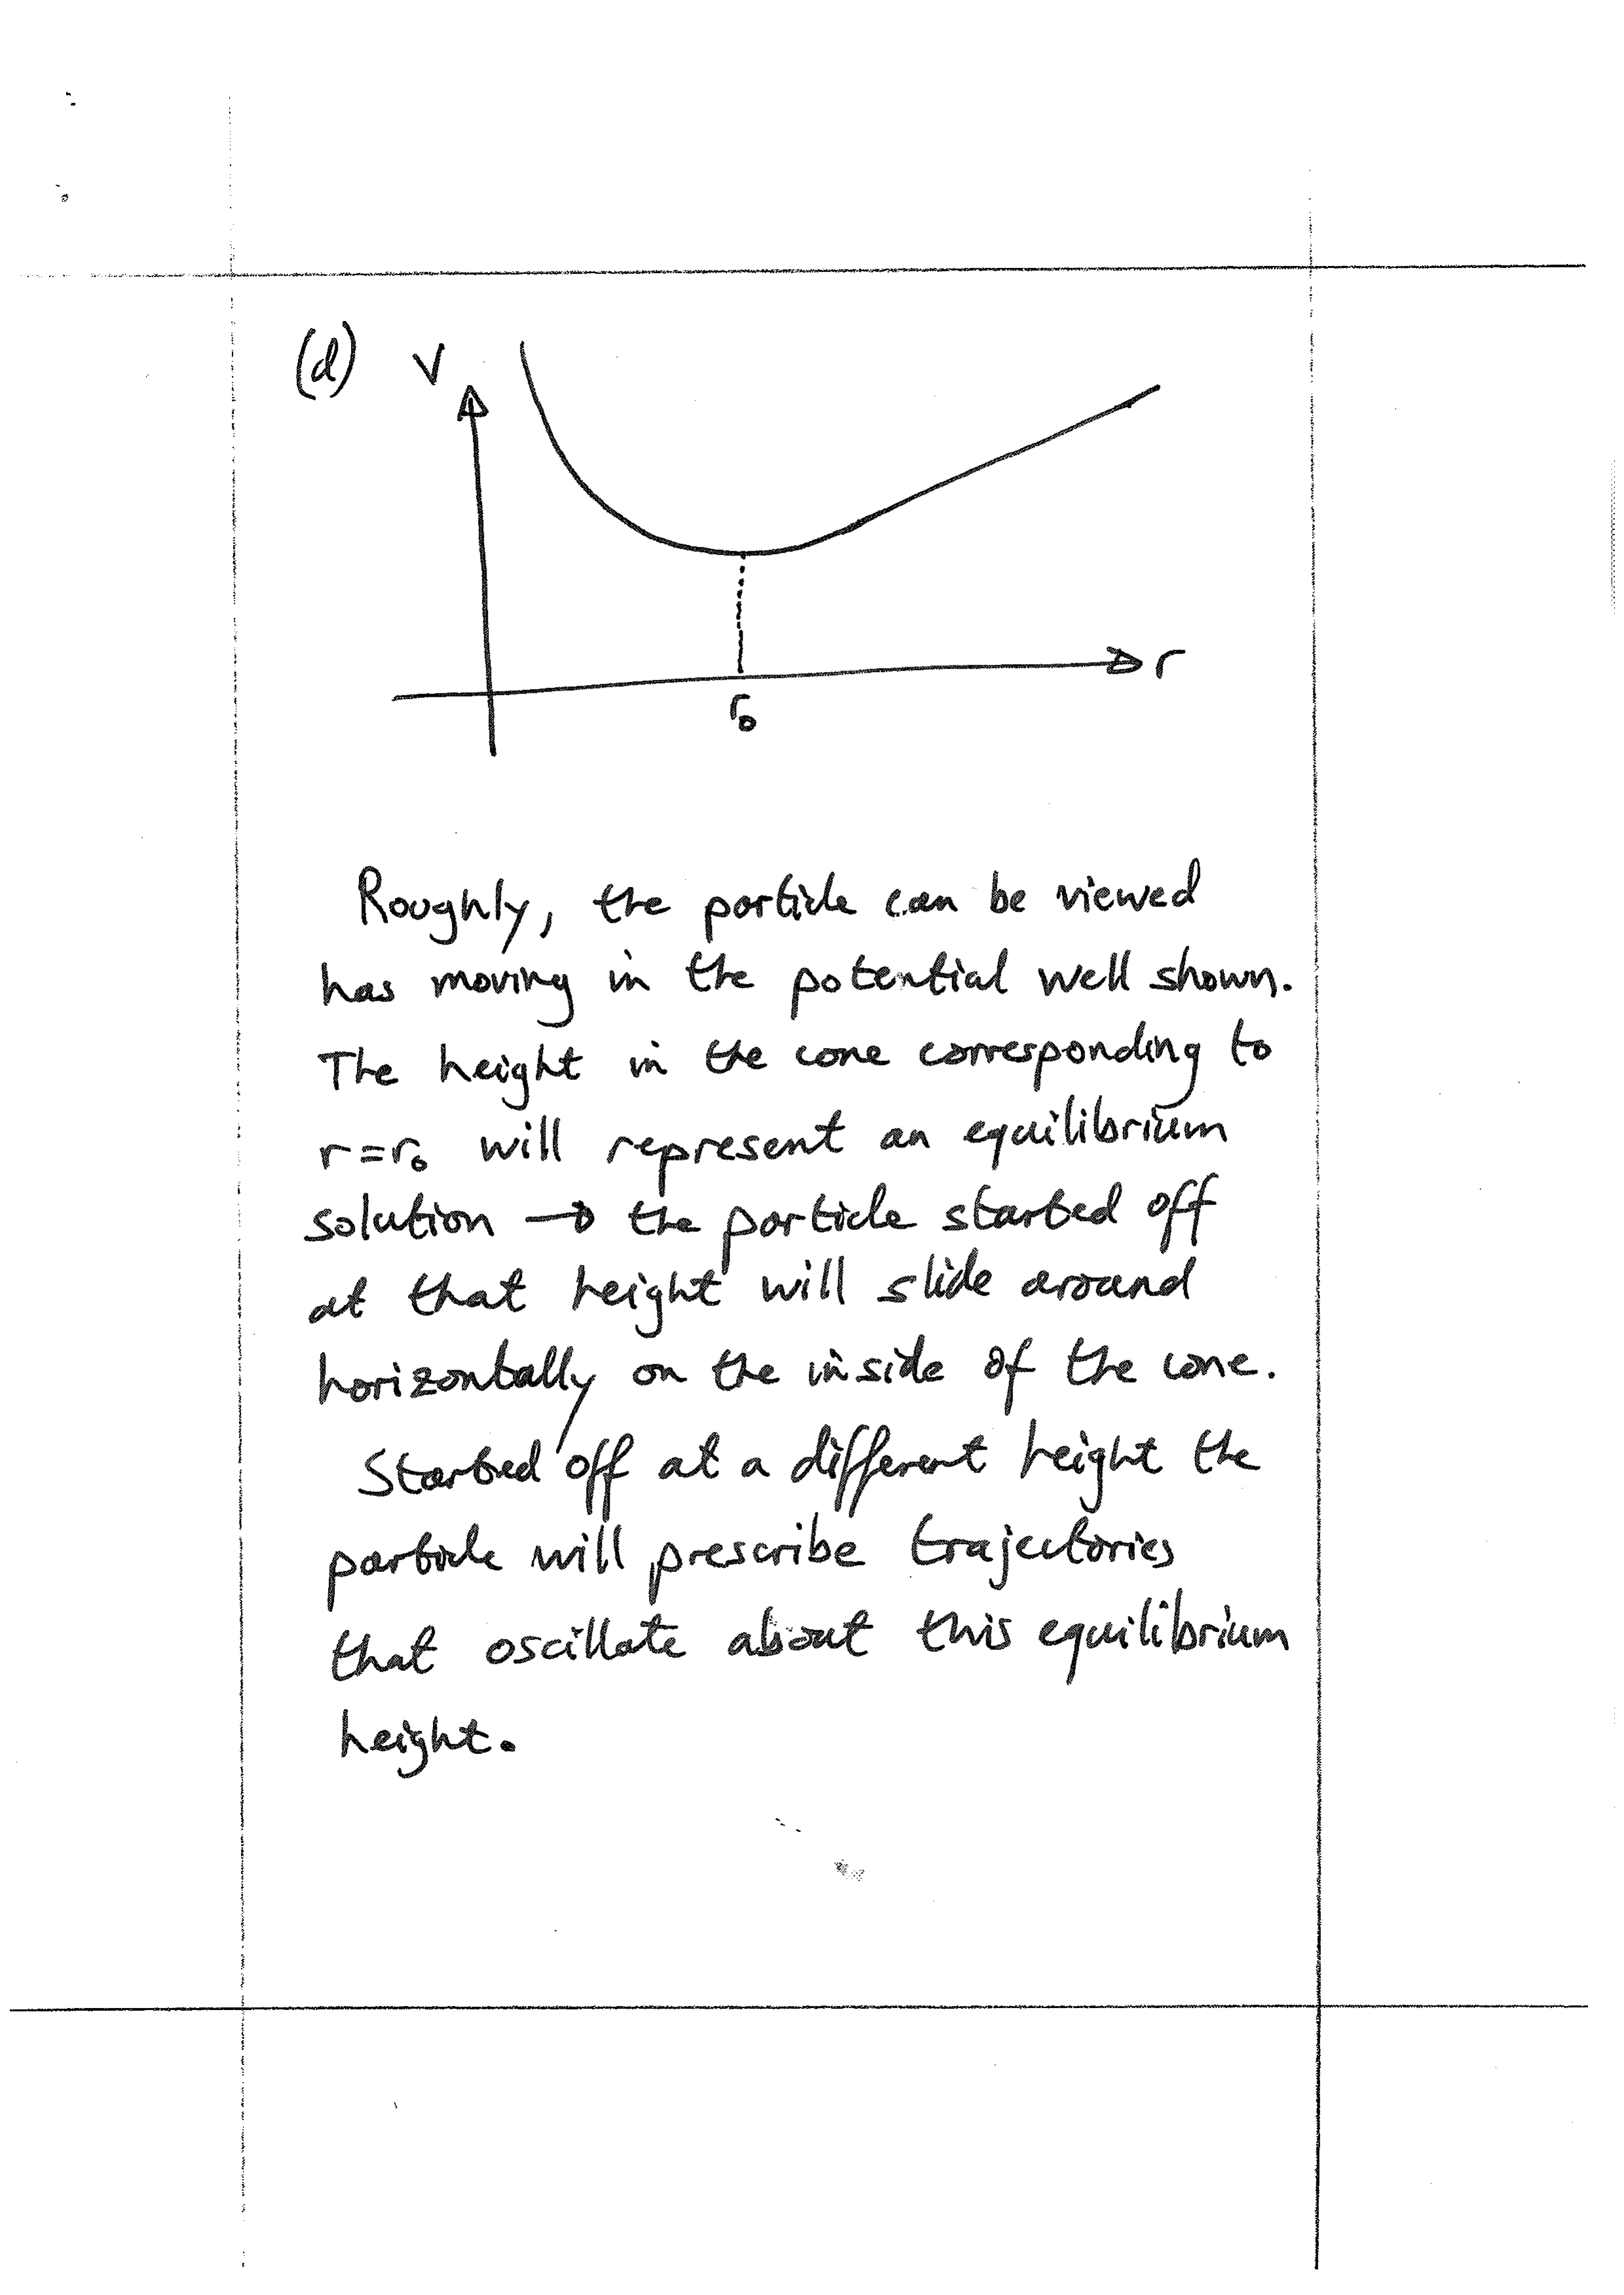 (d) V
r
r₀
Roughly, the particle can be viewed
has moving in the potential well shown.
The height in the cone corresponding to
r=r₀ will represent an equilibrium
solution → the particle started off
at that height will slide around
horizontally on the inside of the cone.
Started off at a different height the
particle will prescribe trajectories
that oscillate about this equilibrium
height.